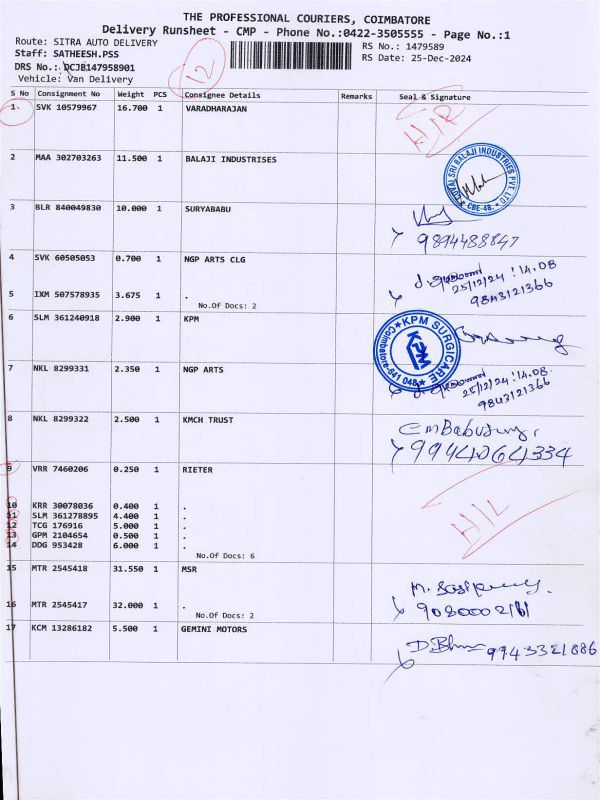 THE PROFESSIONAL COURIERS, COIMBATORE
Delivery Runsheet - CMP - Phone No.:0422-3505555 - Page No.:1
Route: SITRA AUTO DELIVERY
RS No.: 1479589
Staff: SATHEESH.PSS
RS Date: 25-Dec-2024
DRS No.: DCJB147958901
Vehicle: Van Delivery
12
S No Consignment No Weight PCS Consignee Details Remarks Seal & Signature
1 SVK 10579967 16.700 1 VARADHARAJAN
2 MAA 302703263 11.500 1 BALAJI INDUSTRISES
SRI BALAJI INDUSTRIES PVT. LTD. CBE-48.
3 BLR 840049830 10.000 1 SURYABABU
9894488847
4 SVK 60505053 0.700 1 NGP ARTS CLG
25/12/24 14.08
9843121366
5 IXM 507578935 3.675 1 .
No.Of Docs: 2
6 SLM 361240918 2.900 1 KPM
KPM SURGICARE Coimbatore-641 048 KPM
7 NKL 8299331 2.350 1 NGP ARTS
25/12/24 14.08
9843121366
8 NKL 8299322 2.500 1 KMCH TRUST
9944064334
9 VRR 7460206 0.250 1 RIETER
10 KRR 30078036 0.400 1 .
11 SLM 361278895 4.400 1 .
12 TCG 176916 5.000 1 .
13 GPM 2104654 0.500 1 .
14 DDG 953428 6.000 1 .
No.Of Docs: 6
H/L
15 MTR 2545418 31.550 1 MSR
16 MTR 2545417 32.000 1 .
No.Of Docs: 2
17 KCM 13286182 5.500 1 GEMINI MOTORS
9943321886